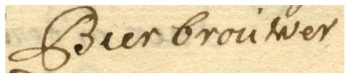 Bier brouwer